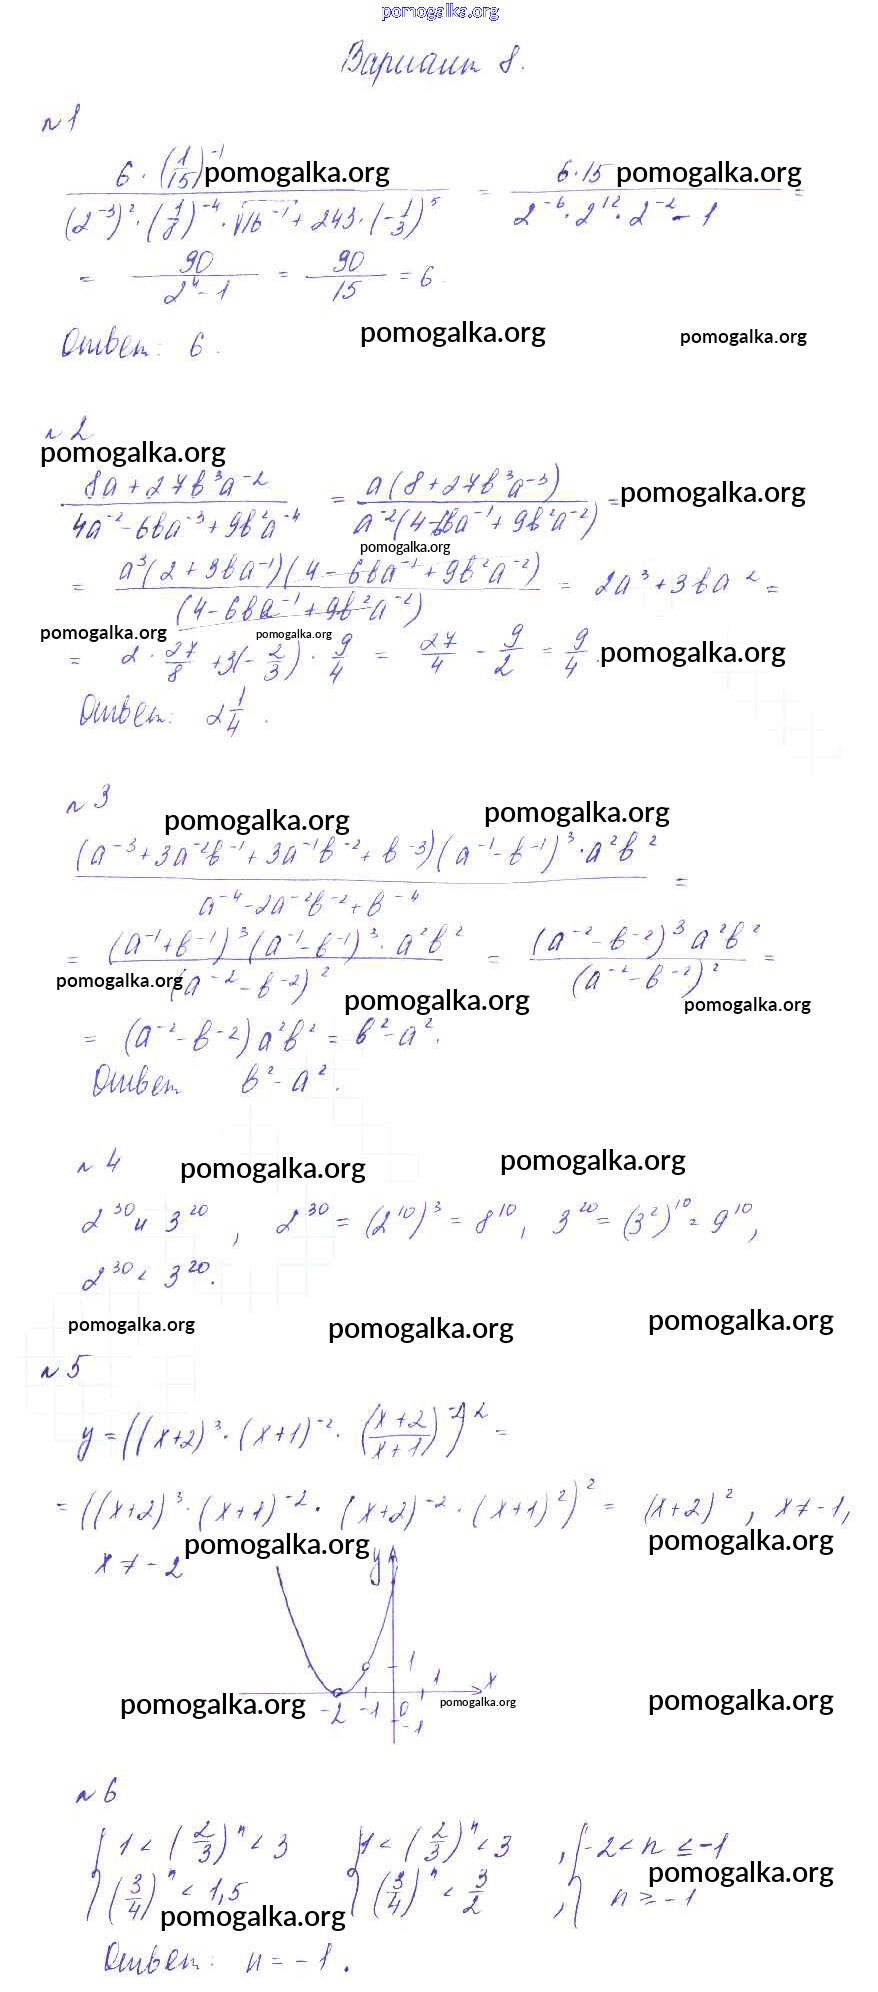 pomogalka.org
Вариант 8.
№1
6 · (1/15)^-1 pomogalka.org / (2^-3)^2 · (1/8)^-4 · √16^-1 + 243 · (-1/3)^5 = 6·15 pomogalka.org / 2^-6 · 2^12 · 2^-2 - 1 =
= 90 / 2^4 - 1 = 90/15 = 6.
Ответ: 6. pomogalka.org pomogalka.org
№2
pomogalka.org
8a + 27b^3a^-2 / 4a^-2 - 6ba^-3 + 9b^2a^-4 = a(8 + 27b^3a^-3) / a^-2(4 - 6ba^-1 + 9b^2a^-2) = pomogalka.org
pomogalka.org
= a^3(2 + 3ba^-1)(4 - 6ba^-1 + 9b^2a^-2) / (4 - 6ba^-1 + 9b^2a^-2) = 2a^3 + 3ba^2 =
pomogalka.org pomogalka.org
= 2 · 27/8 + 3(-2/3) · 9/4 = 27/4 - 9/2 = 9/4. pomogalka.org
Ответ: 2 1/4.
№3
pomogalka.org pomogalka.org
(a^-3 + 3a^-2b^-1 + 3a^-1b^-2 + b^-3)(a^-1 - b^-1)^3 · a^2b^2 / a^-4 - 2a^-2b^-2 + b^-4 =
= (a^-1 + b^-1)^3(a^-1 - b^-1)^3 · a^2b^2 / (a^-2 - b^-2)^2 = (a^-2 - b^-2)^3 a^2b^2 / (a^-2 - b^-2)^2 =
pomogalka.org pomogalka.org pomogalka.org
= (a^-2 - b^-2) a^2b^2 = b^2 - a^2.
Ответ b^2 - a^2.
№4 pomogalka.org pomogalka.org
2^30 и 3^20, 2^30 = (2^10)^3 = 8^10, 3^20 = (3^2)^10 = 9^10,
2^30 < 3^20.
pomogalka.org pomogalka.org pomogalka.org
№5
y = ((x+2)^3 · (x+1)^-2 · (x+2 / x+1)^-2)^2 =
= ((x+2)^3 · (x+1)^-2 · (x+2)^-2 · (x+1)^2)^2 = (x+2)^2, x ≠ -1,
x ≠ -2 pomogalka.org y pomogalka.org
1 1 x
pomogalka.org -2 -1 0 pomogalka.org pomogalka.org
-1
№6
{ 1 < (2/3)^n < 3 { 1 < (2/3)^n < 3 , { -2 < n ≤ -1
pomogalka.org
(3/4)^n < 1,5 (3/4)^n < 3/2 , n ≥ -1
pomogalka.org
Ответ: n = -1.